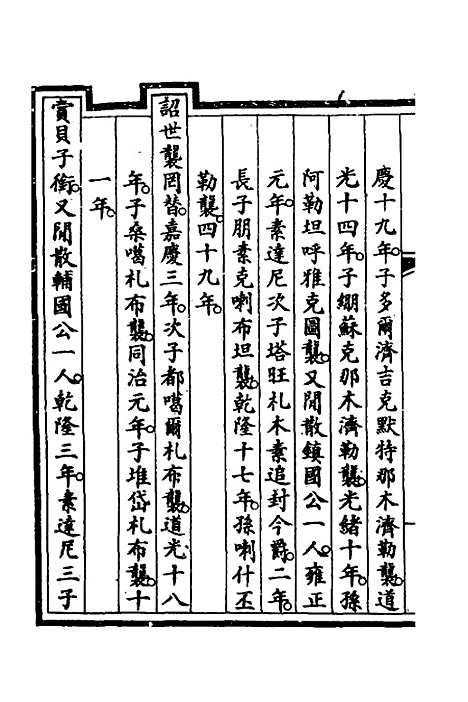 慶十九年子多爾濟吉克默特那木濟勒襲道
光十四年子綳蘇克那木濟勒襲光緒十年孫
阿勒坦呼雅克圖襲又閒散鎮國公一人雍正
元年素達尼次子塔旺札木素追封今爵二年
長子朋素克喇布坦襲乾隆十七年孫喇什丕
勒襲四十九年
詔世襲罔替嘉慶三年次子都噶爾札布襲道光十八
年子桑噶札布襲同治元年子堆岱札布襲十
一年
賞貝子銜又閒散輔國公一人乾隆三年素達尼三子